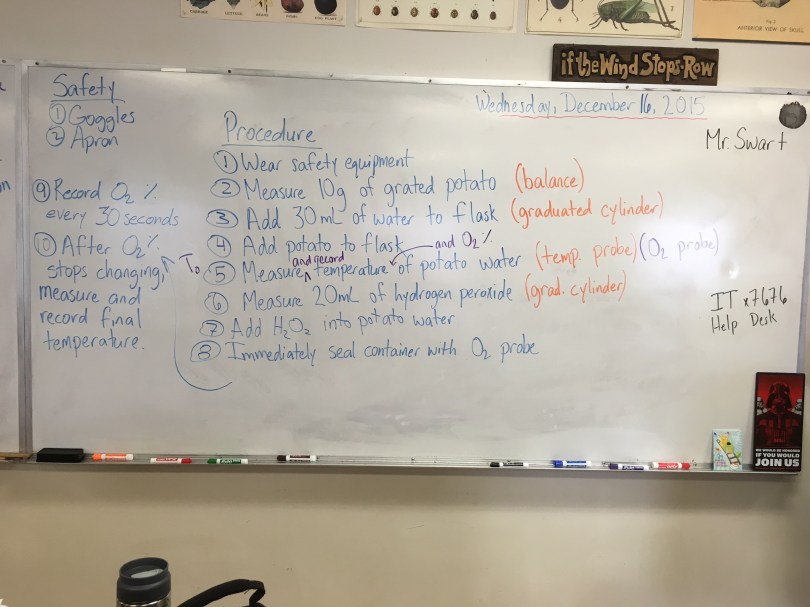 if the Wind Stops-Row
FIG. 3
ANTERIOR VIEW OF SKULL
Wednesday, December 16, 2015
Mr. Swart
Safety
① Goggles
② Apron
Procedure
① Wear safety equipment
② Measure 10g of grated potato (balance)
③ Add 30mL of water to flask (graduated cylinder)
④ Add potato to flask
and record
and O₂ %
⑤ Measure temperature of potato water (temp. probe) (O₂ probe)
⑥ Measure 20mL of hydrogen peroxide (grad. cylinder)
⑦ Add H₂O₂ into potato water
⑧ Immediately seal container with O₂ probe
⑨ Record O₂ %
every 30 seconds
⑩ After O₂ %
stops changing,
measure and
record final
temperature.
To
IT x7676
Help Desk
WE WOULD BE HONORED
IF YOU WOULD
JOIN US